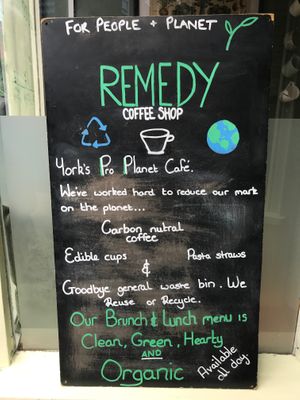 FOR PEOPLE + PLANET
REMEDY
COFFEE SHOP
York's Pro Planet Café.
We've worked hard to reduce our mark
on the planet...
Carbon nutral
coffee
Edible cups
Pasta straws
&
Goodbye general waste bin. We
Reuse or Recycle.
Our Brunch & Lunch menu is
Clean, Green, Hearty
AND
Organic
Available
all day